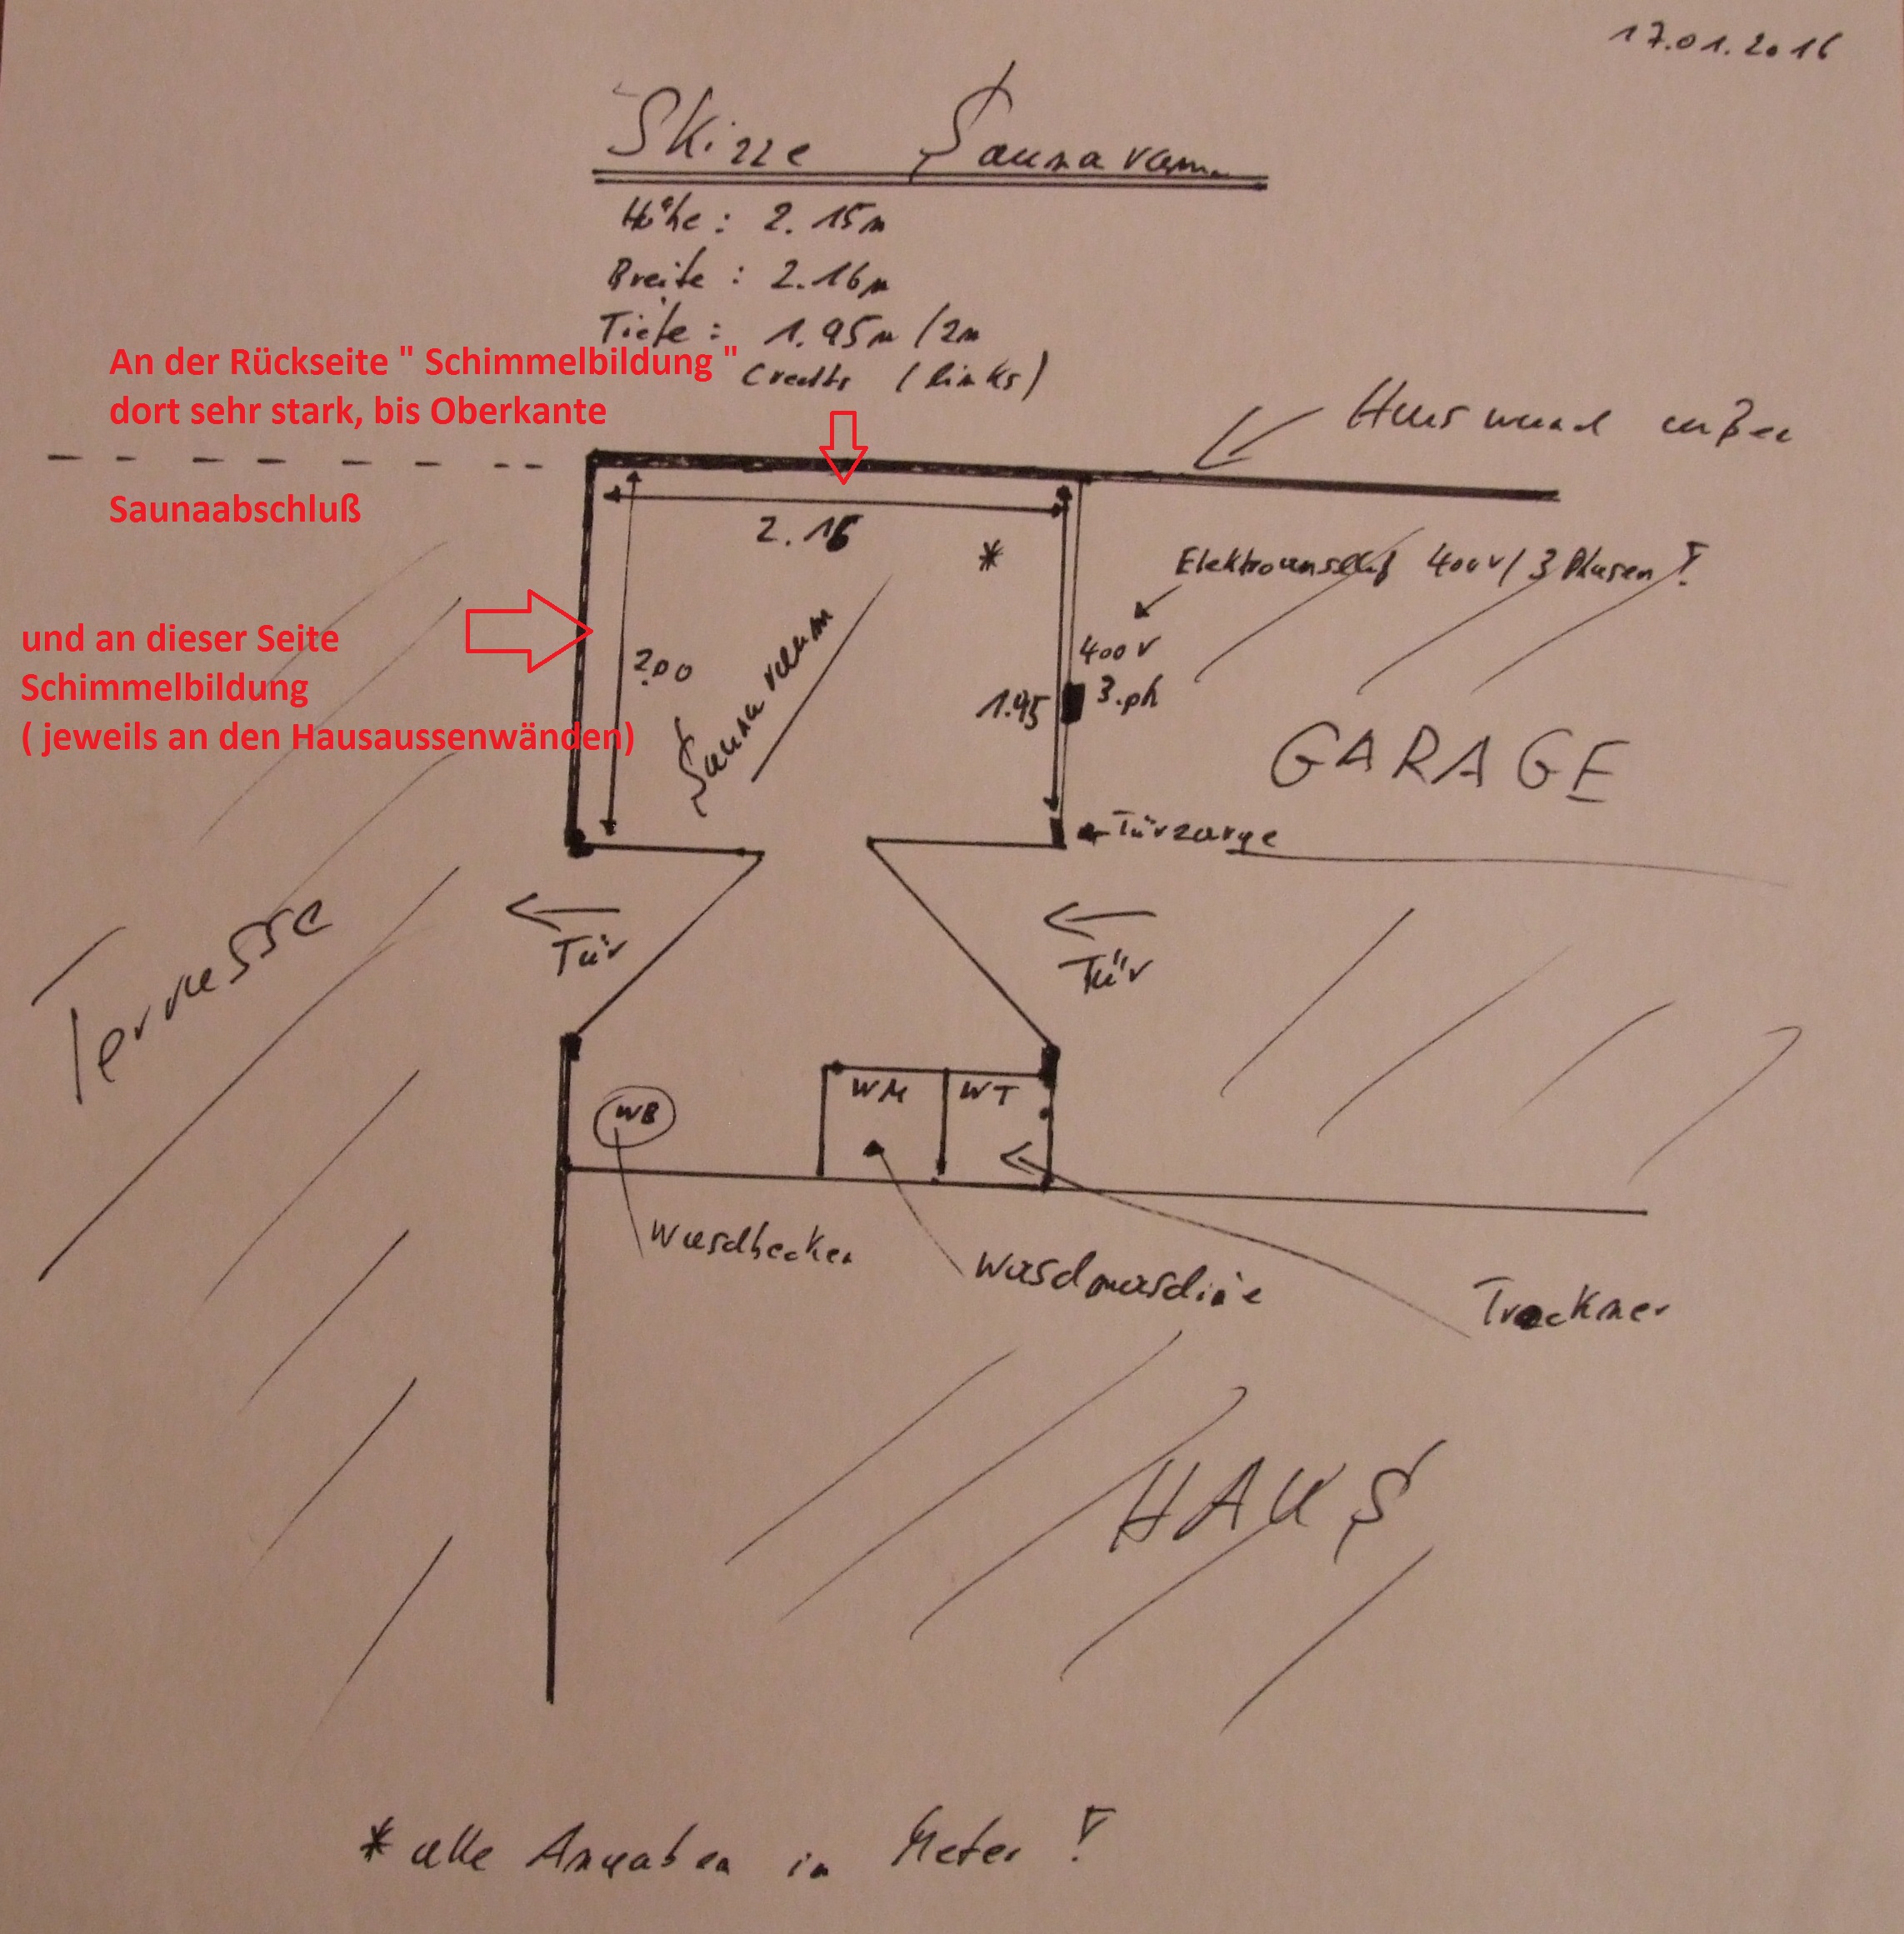 17.01.2016
Skizze Saunaraum
Höhe: 2.15m
Breite: 2.16m
Tiefe: 1.95m / 2m
(rechts) (links)
An der Rückseite " Schimmelbildung "
dort sehr stark, bis Oberkante
Hauswand außen
Saunaabschluß
2.16
*
Elektroanschluß 400V/3 Phasen!
400V
3.ph
und an dieser Seite
Schimmelbildung
( jeweils an den Hausaussenwänden)
2.00
Saunaraum
1.95
GARAGE
Türzarge
Terrasse
Tür
Tür
WM
WT
WB
Waschbecken
Waschmaschine
Trockner
HAUS
* alle Angaben in Meter!